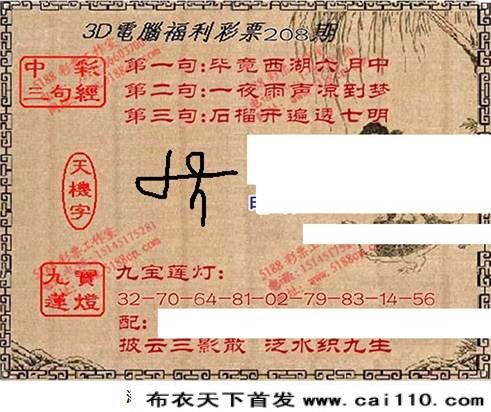 3D電腦福利彩票208期
中彩
三句經
第一句:毕竟西湖六月中
第二句:一夜雨声凉到梦
第三句:石榴开遍透七明
天機字
九寶
蓮燈
九宝莲灯:
32-70-64-81-02-79-83-14-56
配:
披云三影散 泛水织九生
布衣天下首发 www.cai110.com